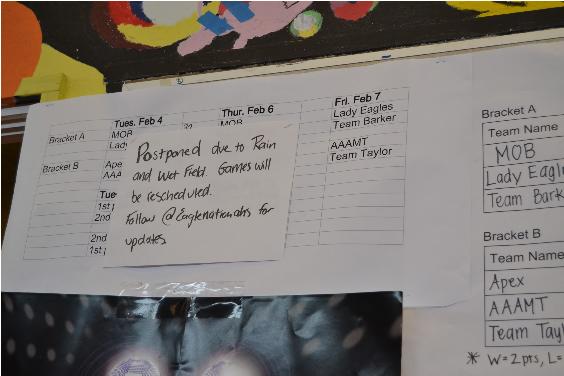 Tues. Feb 4
Thur. Feb 6
Fri. Feb 7
Bracket A
MOB
MOB
Lady Eagles
Lady
Team Barker
Bracket B
Ape
AAAMT
AAA
Team Taylor
Tue
1st
2nd
2nd
1st
Postponed due to Rain
and Wet Field. Games will
be rescheduled.
Follow @Eaglenationahs for
updates.
Bracket A
Team Name
MOB
Lady Eagl
Team Bark
Bracket B
Team Name
Apex
AAAMT
Team Tayl
* W=2pts, L=